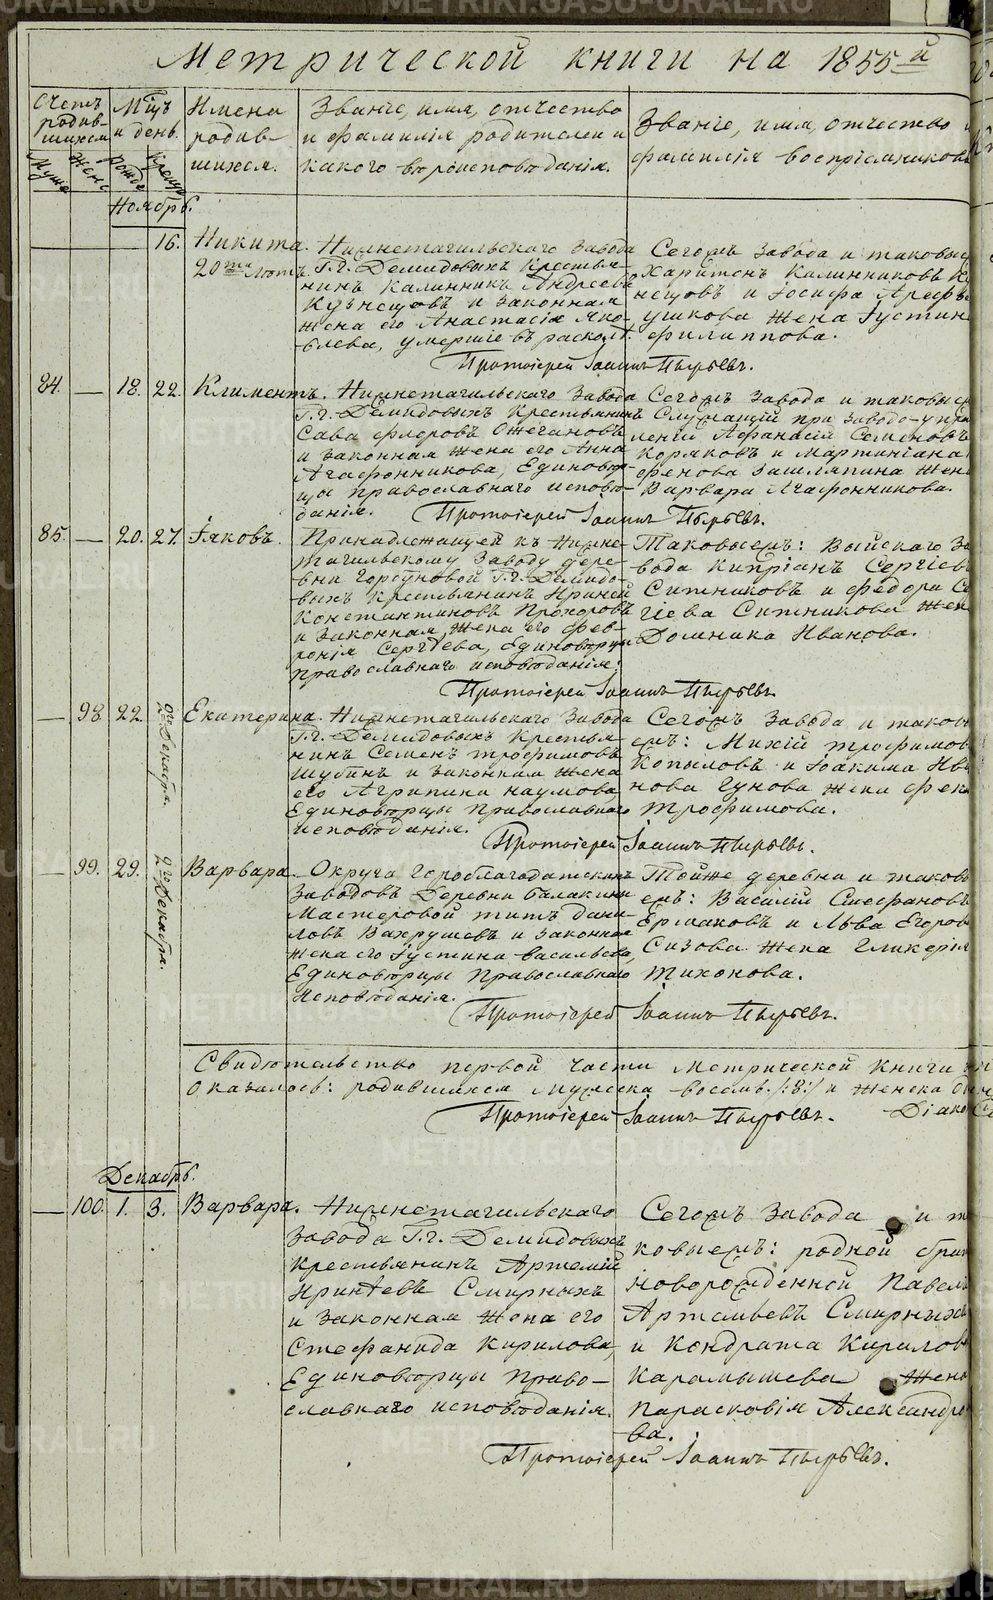 Метрической книги на 1855й
Счетъ родив-шихся.
Мужеска
Женс
Мцъ и день.
Рожде
Крещ
Имена родив-шихся.
Званіе, имя, отчество и фамилія родителей и какого вѣроисповѣданія.
Званіе, имя, отчество и фамилія воспріемниковъ
Ноябрь.
16. Никита. 20ти лѣтъ.
Нижнетагильскаго Завода
Г.г. Демидовыхъ Крестья-
нинъ Калинникъ Андреевъ
Кузнецовъ и законная
жена его Анастасія Яко-
влева, умершіе въ расколѣ.
Сегожъ Завода и таковые
Харитонъ Калинниковъ Ку
нецовъ и Іосифа Арефье
ушкова жена Іустин
Филиппова.
Протоіерей Іоаннъ Пырьевъ.
84. — 18. 22. Климентъ.
Нижнетагильскаго Завода
Г.г. Демидовыхъ Крестьянинъ
Сава Флоровъ Ожегановъ
и законная жена его Анна
Агафонникова, Единовѣр-
цы православнаго исповѣ-
данія.
Сегожъ Завода и таковые
Служащій при заводо-упра
леніи Афанасій Семеновъ
Коряковъ и Мартиніана
фенова Зашляпина жен
Варвара Агафонникова.
Протоіерей Іоаннъ Пырьевъ.
85. — 20. 27. Іяковъ.
Принадлежащей къ Нижне-
тагильскому Заводу дере-
вни Горѣуновой Г.г. Демидо-
выхъ Крестьянинъ Ириней
Константиновъ Прохоровъ
и законная жена его Фев-
ронія Сергѣева, Единовѣрцы
Православнаго исповѣданія.
Таковыежъ: Выйскаго За
вода Кипріанъ Сергіевъ
Ситниковъ и Федора Се
гіева Ситникова жен
Домника Иванова.
Протоіерей Іоаннъ Пырьевъ.
— 98 22 2го Декабря. Екатерина.
Нижнетагильскаго Завода
Г.г. Демидовыхъ Крестья-
нинъ Семенъ Трофимовъ
Шубинъ и законная жена
его Агрипина Наумова,
Единовѣрцы Православнаго
исповѣданія.
Сегожъ Завода и таков
ежъ: Михій Трофимов
Копыловъ и Іоакима Ива
нова Гунова жена Фек
Трофимова.
Протоіерей Іоаннъ Пырьевъ.
— 99. 29. 2го Декабря. Варвара.
Округа Гороблагодатскихъ
Заводовъ Деревни Балакиной
Мастеровой Титъ Дани-
ловъ Вахрушевъ и законная
жена его Іустина Васильева,
Единовѣрцы Православнаго
исповѣданія.
Тойже деревни и таков
ежъ: Василій Стефановъ
Ермаковъ и Льва Егоров
Сизова жена Гликерія
Тихонова.
Протоіерей Іоаннъ Пырьевъ.
Свидѣтельство первой части Метрической Книги
Оказалось: родившихся мужеска восемь /:8:/ и женска
Протоіерей Іоаннъ Пырьевъ.
Діако
Декабрь.
— 100. 1. 3. Варвара.
Нижнетагильскаго
Завода Г.г. Демидовыхъ
Крестьянинъ Артемій
Иринѣевъ Смирныхъ
и законная жена его
Стефанида Кирилова,
Единовѣрцы Право-
славнаго исповѣданія.
Сегожъ Завода и та
ковыежъ: родной брат
новорожденной Павелъ
Артемьевъ Смирныхъ
и Кондрата Кирилов
Карамышева жена
Парасковія Александро
ва.
Протоіерей Іоаннъ Пырьевъ.
METRIKI.GASU-URAL.RU